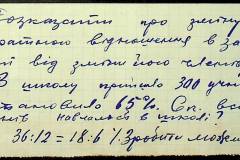 Розказати про зміну
кратного відношення в за
ті від зміни його членів
В школу прийшло 300 учн
становило 65%. Ск. вс
нів навчалося в школі?
36:12 = 18:6 / Зробити можли